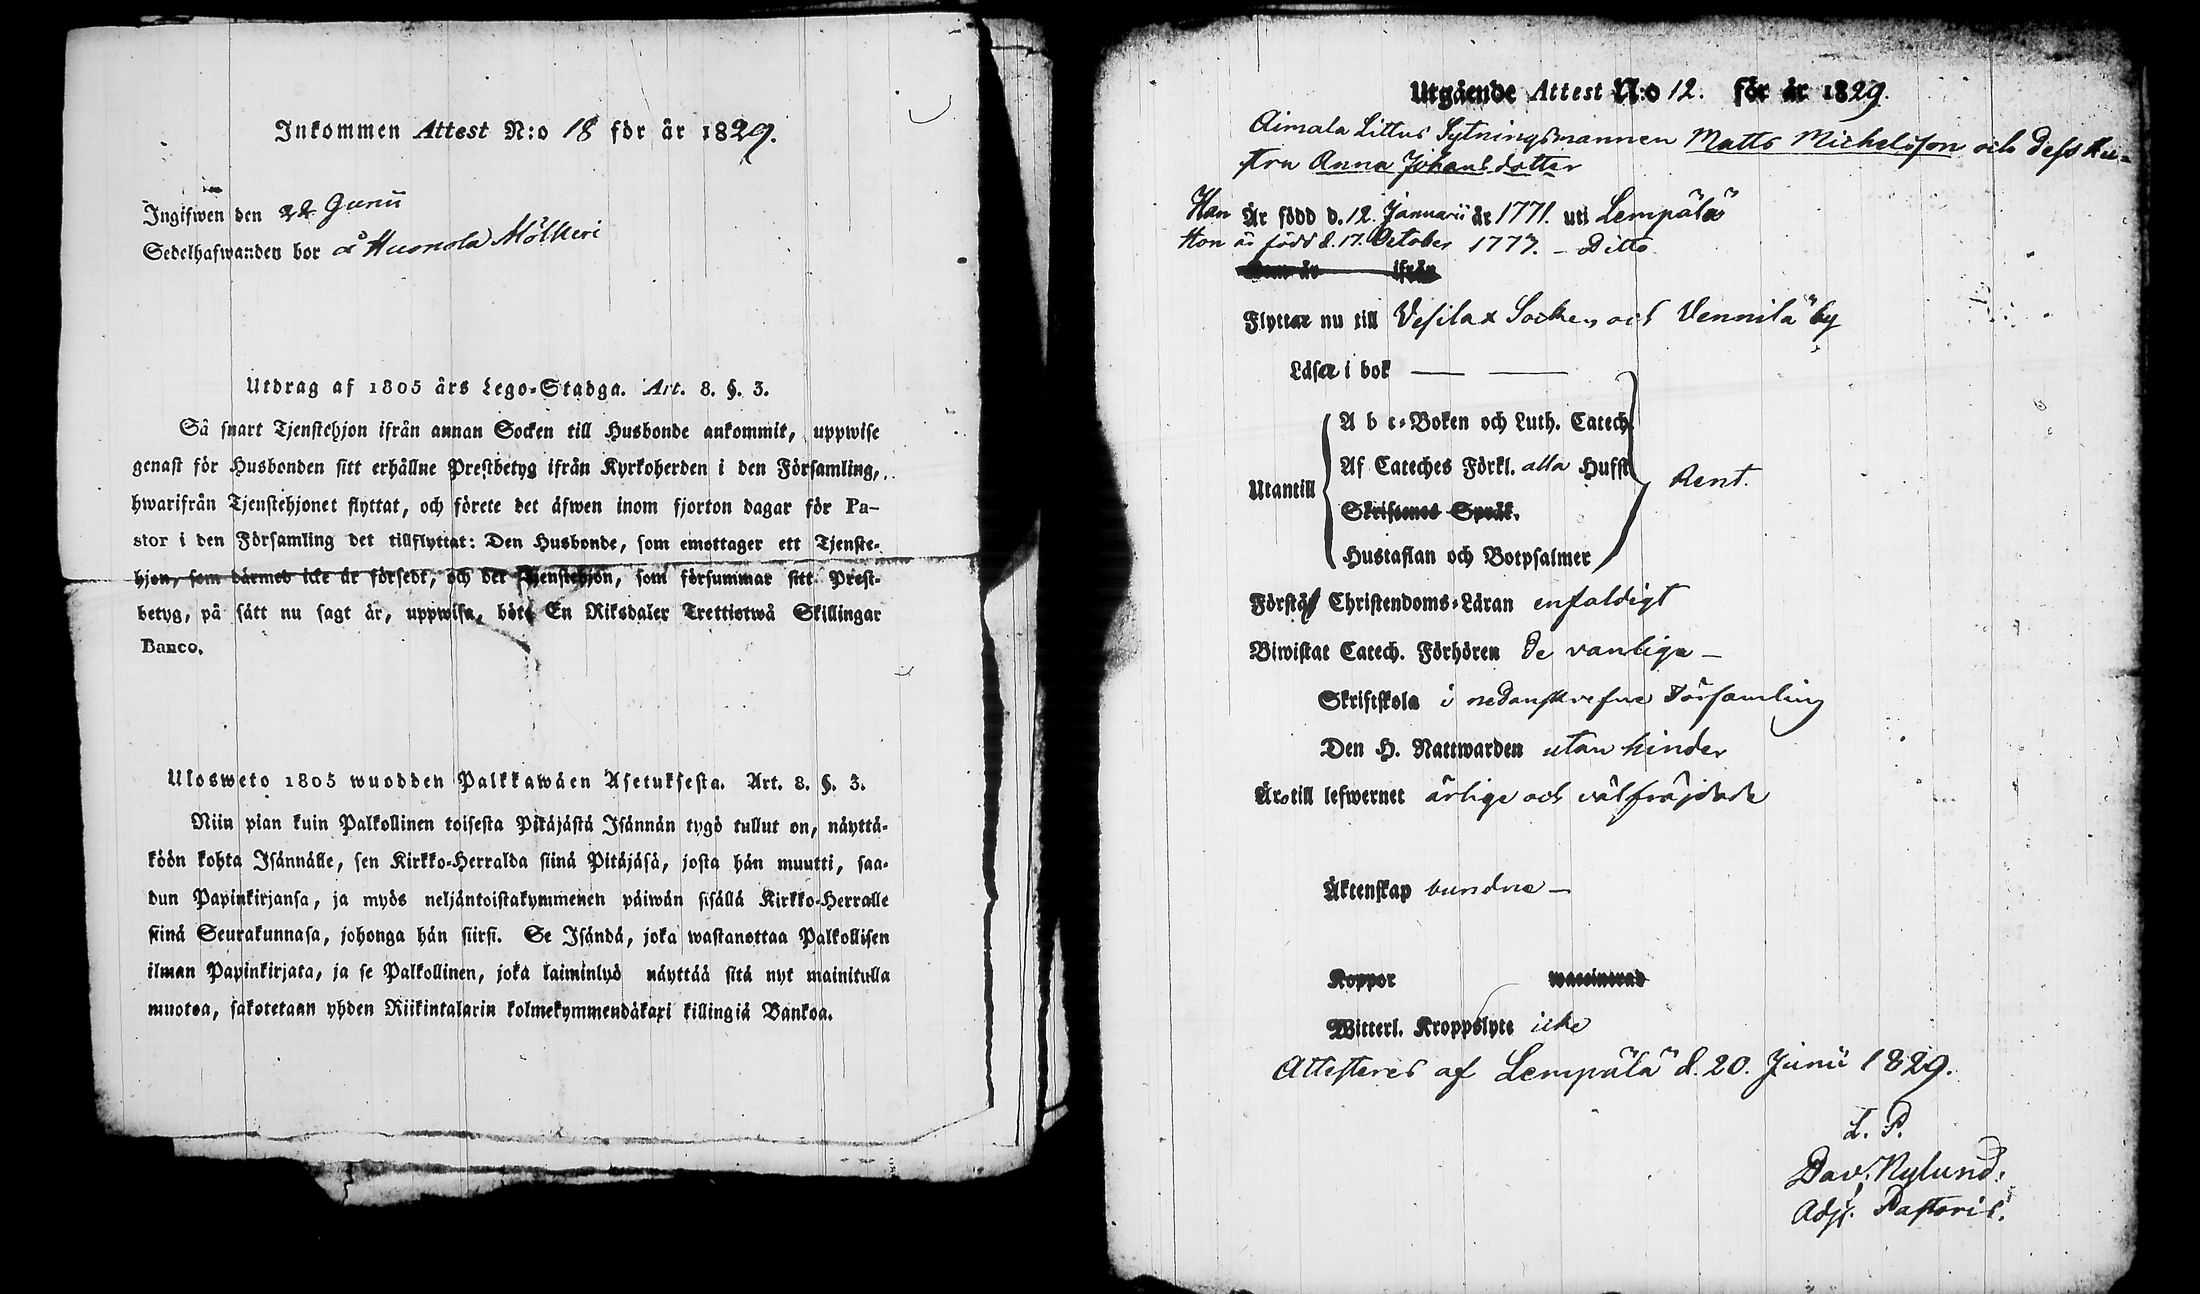 Inkommen Attest N:o 18 för år 1829.
Ingifwen den 22 Junii
Sedelhafwanden bor å Huonola Mölkeri
Utdrag af 1805 års Lego-Stadga. Art. 8. §. 3.
Så snart Tjenstehjon ifrån annan Socken till Husbonde ankommit, uppwise
genast för Husbonden sitt erhållne Prestbetyg ifrån Kyrkoherden i den Församling,
hwarifrån Tjenstehjonet flyttat, och förete det äfwen inom fjorton dagar för Pa-
stor i den Församling det tillflyttat: Den Husbonde, som emottager ett Tjenste-
hjon, som dårmed icke år försedt, och det Tjenstehjon, som försummar sitt Prest-
betyg, på sått nu sagt år, uppwisa, böte En Riksdaler Trettiotwå Skillingar
Banco.
Ulosweto 1805 wuodden Palkkawåen Asetuksesta. Art. 8. §. 3.
Niin pian kuin Palkollinen toisesta Pitåjåstå Isånnån tygö tullut on, nåyttå-
köön kohta Isånnålle, sen Kirkko-Herralda siinå Pitåjåså, josta hån muutti, saa-
dun Papinkirjansa, ja myös neljåntoistakymmenen påiwån sisållå Kirkko-Herralle
siinå Seurakunnasa, johonga hån siirsi. Se Isåndå, joka wastanottaa Palkollisen
ilman Papinkirjata, ja se Palkollinen, joka laiminlyö nåyttåå sitå nyt mainitulla
muotoa, sakotetaan yhden Riikintalarin kolmekymmendåkaxi killingiå Bankoa.
Utgående Attest N:o 12. för år 1829.
Aimala Littus Sytningsmannen Matts Michelsson och dess hu-
stru Anna Johansdotter
Han Är född d. 12. Januarii år 1771. uti Lempälä
Hon är född d. 17. October 1777. – Ditto
ifrån
Flyttar nu till Vesilax Socken och Vennilä by
Läsa i bok — —
A b c-Boken och Luth. Catech.
Af Cateches Förkl. alla Hufst.
Utantill Rent.
Skriftenes Språk.
Hustaflan och Botpsalmer
Förstå Christendoms-Läran enfaldigt
Biwistat Catech. Förhören de vanliga –
Skriftskola i nedanskrefne Församling
Den H. Nattwarden utan hinder
Äro till lefwernet ärlige och välfräjdade
Äktenskap bundne –
Koppor waccinerad
Witterl. Kroppslyte icke
Attesteres af Lempälä d. 20. Junii 1829.
L. P.
Dav. Nylund.
Adj. Pastoris.